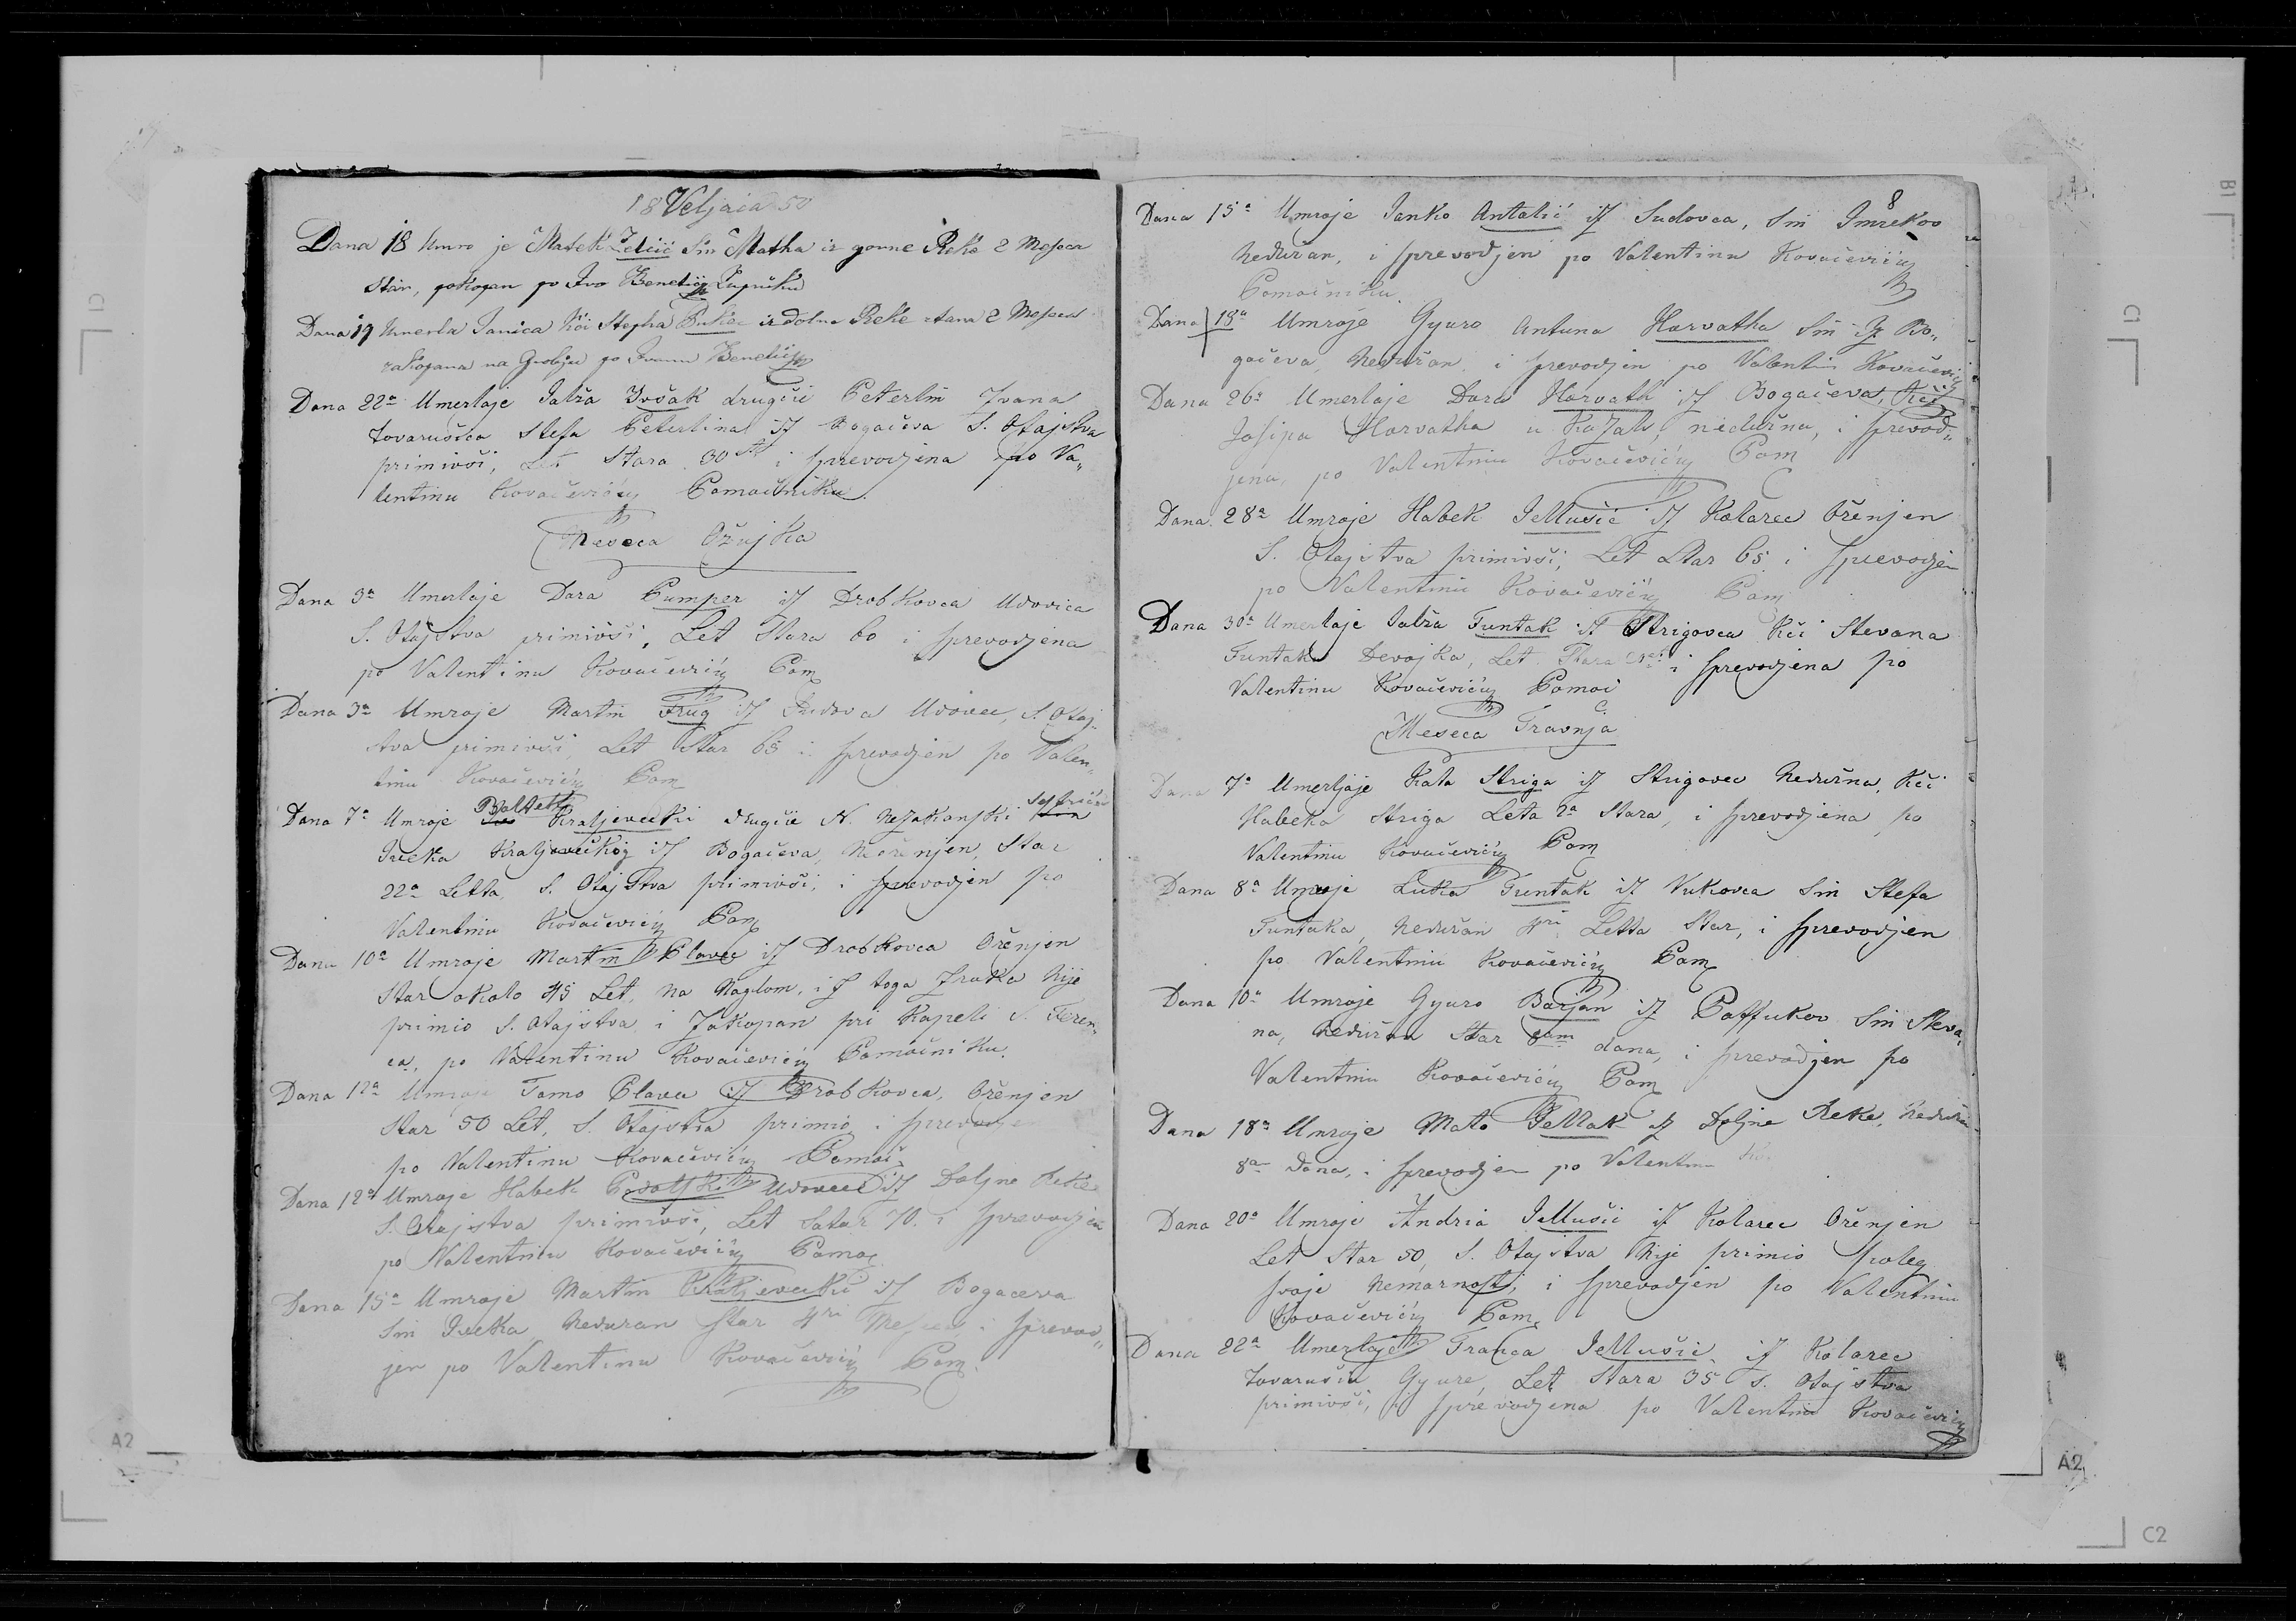 18 Veljača 50
Dana 18 Umro je Matek Zelčić Sin Matha iz gorne Reke 2 Meseca
star, pokopan po Ivo Benetiću Župniku
Dana 19 Umerla Janica kći Stepha Puker iz dolne Reke stara 2 Meseca
zakopana na Groblju po Ivanu Benetiću
Dana 22a Umerlaje Jalža Ivšak drugčie Peterlin Ivana
tovarušica Stefa Peterlina iz Bogačeva S. Otajstva
primivši, Let Stara 30 i sprevodjena po Va„
lentinu Kovačeviću Pomoćniku.
Meseca Ožujka
Dana 3a Umerlaje Dora Pumper iz Drobkovca Udovica
S. Otajstva primivši, Let Stara 60 i sprevodjena
po Valentinu Kovačeviću Pom
Dana 3a Umroje Martin Frug iz Udovec, S. Otaj-
stva primivši, Let Star 65 i sprevodjen po Valen„
tinu Kovačeviću Pom
Dana 7a Umroje Baltek Kraljevečki drugčie N. Nezakonjski
Ivecka Kraljevečkog iz Bogačeva, Neoženjen, Star
22a Letta, S. Otajstva primivši, i sprevodjen po
Valentinu Kovačeviću Pom
Dana 10a Umroje Martin Plavec iz Drobkovca Oženjen
Star okolo 45 Let, na Naglom, iz toga zroka Nije
primio S. Otajstva i Zakopan pri Kapeli S. Feren„
ca, po Valentinu Kovačeviću Pomoćniku.
Dana 12a Umroje Tomo Plavec iz Drobkovca, Oženjen
Star 50 Let, S. Otajstva primio i sprevodjen
po Valentinu Kovačeviću Pomoć
Dana 12a Umroje Habek Podolski Udovec iz Doljne Reke
S. Otajstva primivši, Let Satar 70. i sprevodjen
po Valentinu Kovačeviću Pomoć
Dana 15a Umroje Martin Kraljevečki iz Bogačeva
Sin Ivecka, Nedužan Star 4ri Meseca i sprevod„
jen po Valentinu Kovačeviću Pom.
8
Dana 15a Umroje Janko Antalić iz Sudovca, Sin Imrekov
Nedužan, i sprevodjen po Valentinu Kovačeviću
Pomoćniku.
Dana 18a Umroje Gyuro Antuna Horvatha Sin Iz Bo„
gačeva, Nedužan, i sprevodjen po Valentin Kovačeviću
Dana 26a Umerlaje Dora Horvath iz Bogačeva, Kći
Josipa Horvatha u, nedužna, i sprevod„
jena, po Valentinu Kovačeviću Pom
Dana 28a Umroje Habek Jellušić iz Kolarec Oženjen
S. Otajstva primivši, Let Star 65 i sprevodjen
po Valentinu Kovačeviću Pom
Dana 30a Umerlaje Jalža Funtak iz Strigovca Kći Stevana
Funtaka Devojka, Let Stara i sprevodjena po
Valentinu Kovačeviću Pomoć
Meseca Travnja
Dana 7a Umerljaje Kata Striga iz Strigovec Nedužna, Kći
Habeka Striga Leta 2a Stara, i sprevodjena po
Valentinu Kovačeviću Pom
Dana 8a Umroje Lucka Funtak iz Vukovca Sin Stefa
Funtaka, Nedužan 4ri Letta Star, i sprevodjen
po Valentinu Kovačeviću Pom
Dana 10a Umroje Gyuro Barjan iz Paffukov Sin Steva„
na, Nedužan Star dana, i sprevodjen po
Valentinu Kovačeviću Pom
Dana 18a Umroje Mato Jellak iz Doljne Reke, Nedužan
8a Dana, i sprevodjen po Valentinu
Dana 20a Umroje Andria Jellušić iz Kolarec Oženjen
Let Star 50, S. Otajstva Nije primio poleg
svoje Nemarnosti, i sprevodjen po Valentinu
Kovačeviću Pom
Dana 22a Umerlaje Franca Jellušić iz Kolarec
tovarušica Gyure, Let Stara 35 S. Otajstva
primivši, i sprevodjena po Valentinu Kovačeviću
C1
A2
B1
C1
A2
C2